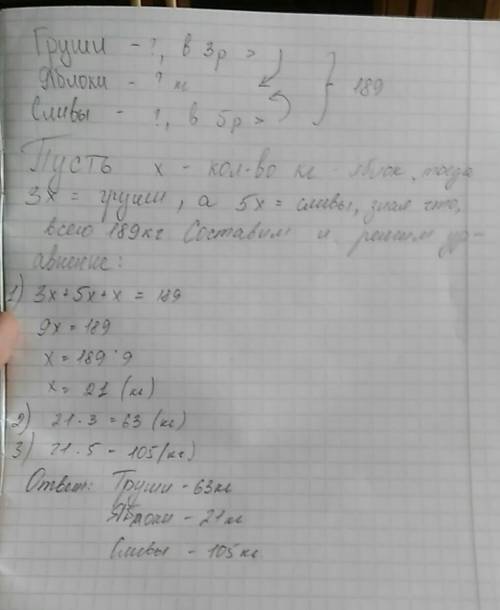 Груши - ?, в 3р >
Яблоки - ? кг
Сливы - ?, в 5р >
189
Пусть х - кол-во кг яблок, тогда
3х = груши, а 5х = сливы, зная что,
всего 189кг Составим и решим ур-
авнение:
1) 3х+5х+х = 189
9х = 189
х = 189:9
х = 21 (кг)
2) 21·3 = 63 (кг)
3) 21·5 = 105(кг)
Ответ: Груши - 63кг
Яблоки - 21кг
Сливы - 105кг